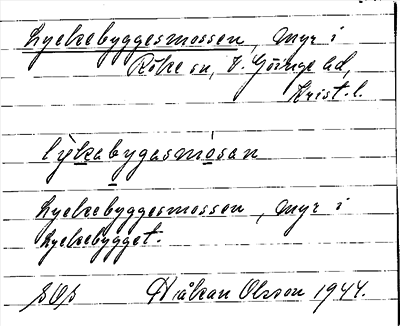 Lyckebyggesmossen, myr i
Röke sn, V. Göinge hd,
Krist. l.
lỳkabygasmósan
Lyckebyggesmossen, myr i
Lyckebygget.
Håkan Olsson 1944.